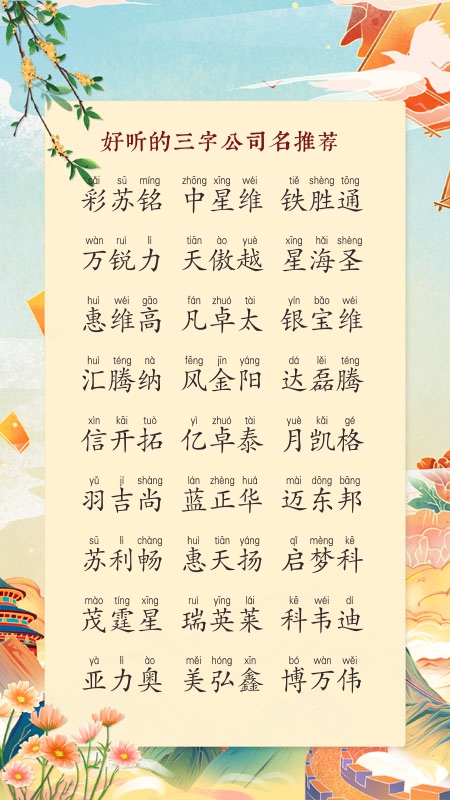 好听的三字公司名推荐
cǎi sū míng zhōng xīng wéi tiě shèng tōng
彩苏铭 中星维 铁胜通
wàn ruì lì tiān ào yuè xīng hǎi shèng
万锐力 天傲越 星海圣
huì wéi gāo fán zhuó tài yín bǎo wéi
惠维高 凡卓太 银宝维
huì téng nà fēng jīn yáng dá lěi téng
汇腾纳 风金阳 达磊腾
xìn kāi tuò yì zhuó tài yuè kǎi gé
信开拓 亿卓泰 月凯格
yǔ jí shàng lán zhèng huá mài dōng bāng
羽吉尚 蓝正华 迈东邦
sū lì chàng huì tiān yáng qǐ mèng kē
苏利畅 惠天扬 启梦科
mào tíng xīng ruì yīng lái kē wéi dí
茂霆星 瑞英莱 科韦迪
yà lì ào měi hóng xīn bó wàn wěi
亚力奥 美弘鑫 博万伟